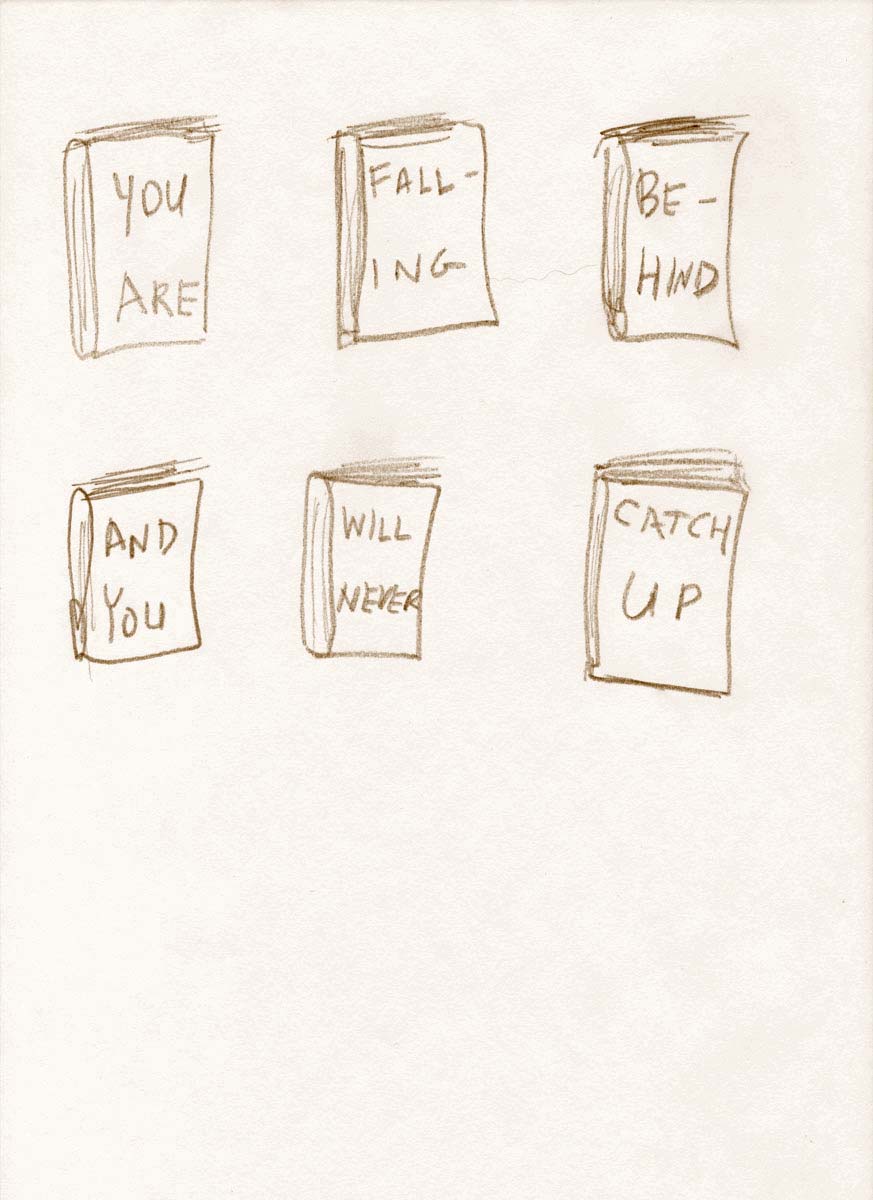 YOU
ARE
FALL-
ING
BE-
HIND
AND
YOU
WILL
NEVER
CATCH
UP